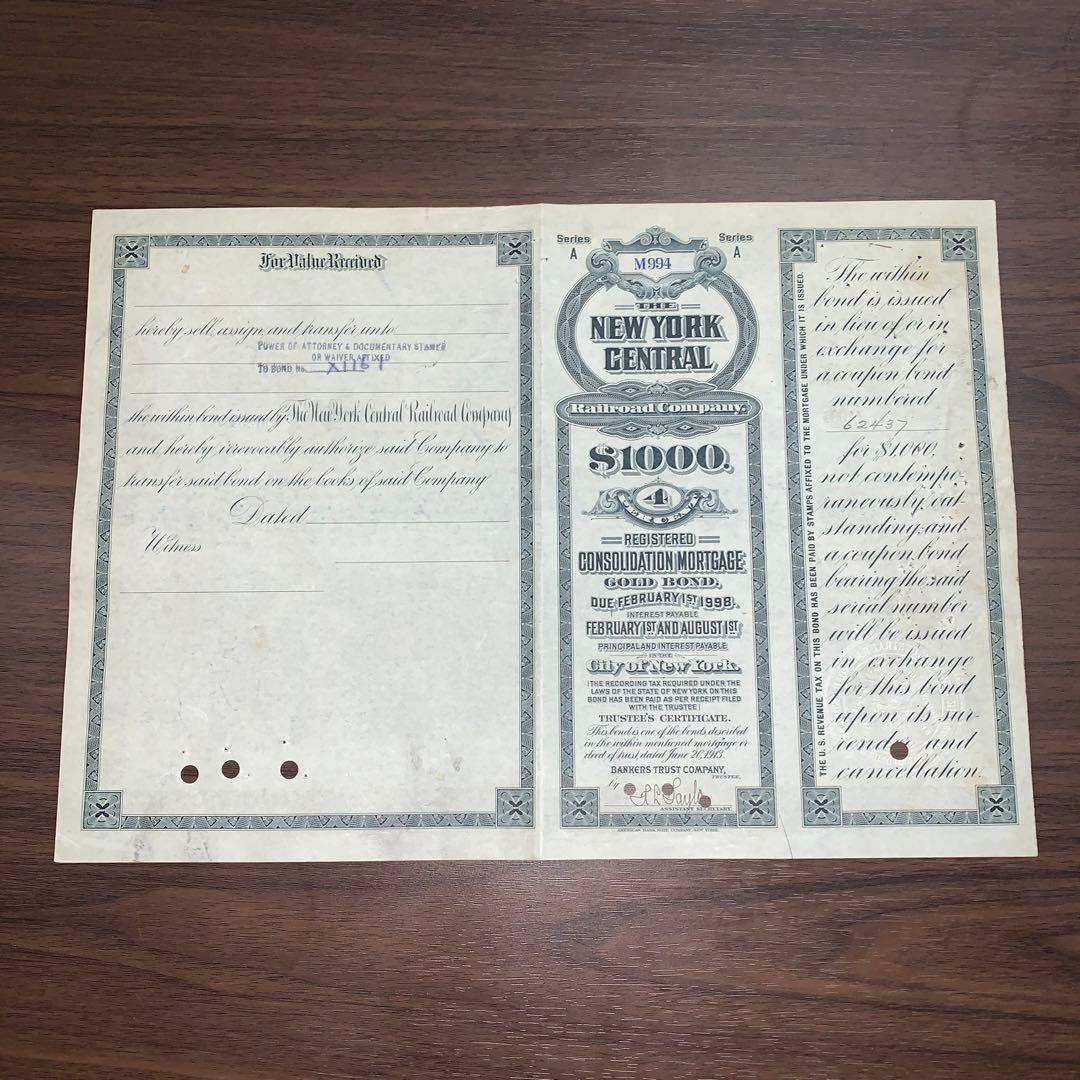 For Value Received
hereby sell, assign, and transfer unto
POWER OF ATTORNEY & DOCUMENTARY STAMPS
OR WAIVER AFFIXED
TO BOND No. X1161
the within bond issued by The New York Central Railroad Company
and hereby irrevocably authorize said Company to
transfer said bond on the books of said Company
Dated
Witness
Series
A
Series
A
M994
THE
NEW YORK
CENTRAL
Railroad Company.
$1000.
4
PER CENT
REGISTERED
CONSOLIDATION MORTGAGE
GOLD BOND,
DUE FEBRUARY 1ST 1998.
INTEREST PAYABLE
FEBRUARY 1ST AND AUGUST 1ST
PRINCIPAL AND INTEREST PAYABLE
IN THE
City of New York.
(THE RECORDING TAX REQUIRED UNDER THE
LAWS OF THE STATE OF NEW YORK ON THIS
BOND HAS BEEN PAID AS PER RECEIPT FILED
WITH THE TRUSTEE)
TRUSTEE'S CERTIFICATE.
This bond is one of the bonds described
in the within mentioned mortgage or
deed of trust, dated June 20, 1913.
BANKERS TRUST COMPANY,
TRUSTEE,
by
ASSISTANT SECRETARY.
AMERICAN BANK NOTE COMPANY, NEW YORK.
THE U.S. REVENUE TAX ON THIS BOND HAS BEEN PAID BY STAMPS AFFIXED TO THE MORTGAGE UNDER WHICH IT IS ISSUED.
The within
bond is issued
in lieu of or in
exchange for
a coupon bond
numbered
62437
for $1000.
not contempo-
raneously out-
standing; and
a coupon bond
bearing the said
serial number
will be issued
in exchange
for this bond
upon its sur-
render and
cancellation.